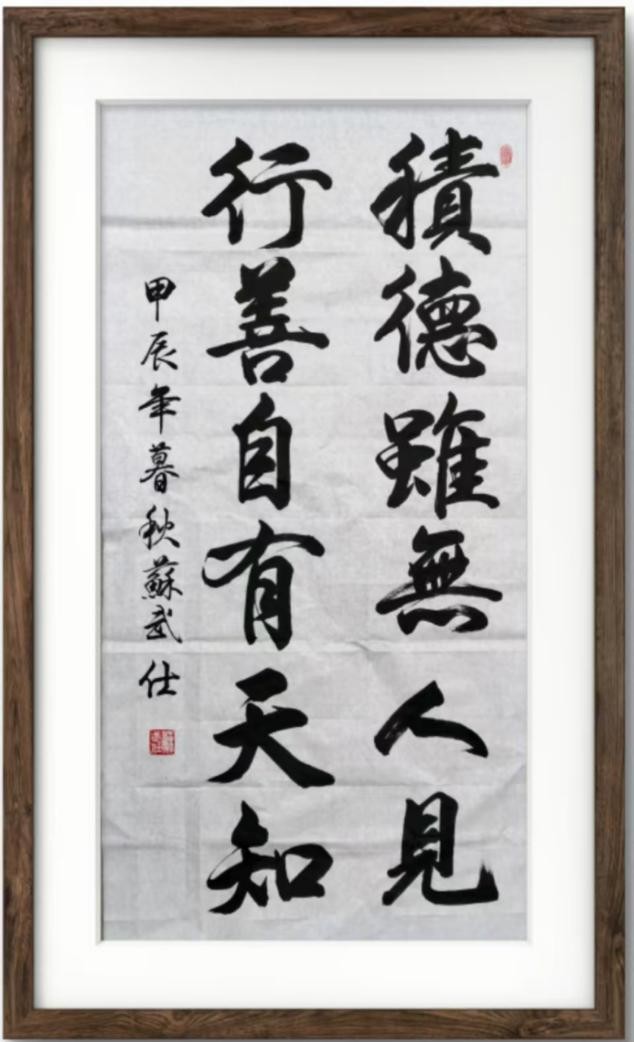 積德雖無人見
行善自有天知
甲辰年暮秋蘇武仕